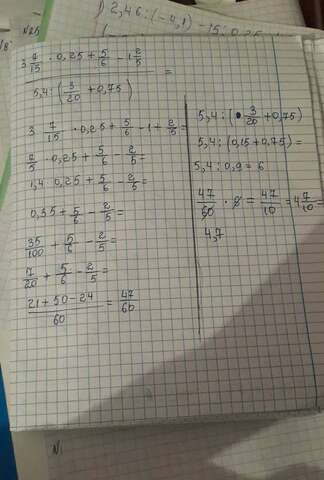 N25
1) 2,46 : (-4,1) - 15 : 0,25
3 7/15 · 0,25 + 5/6 - 1 2/5
=
5,4 : (3/20 + 0,75)
3 7/15 · 0,25 + 5/6 - 1 + 2/5 =
7/5 · 0,25 + 5/6 - 2/5 =
1,4 · 0,25 + 5/6 - 2/5 =
0,35 + 5/6 - 2/5 =
35/100 + 5/6 - 2/5 =
7/20 + 5/6 - 2/5 =
21 + 50 - 24/60 = 47/60
5,4 : (3/20 + 0,75)
5,4 : (0,15 + 0,75) =
5,4 : 0,9 = 6
47/60 · 6 = 47/10 = 4 7/10
4,7
N